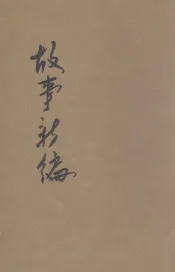 故事新编